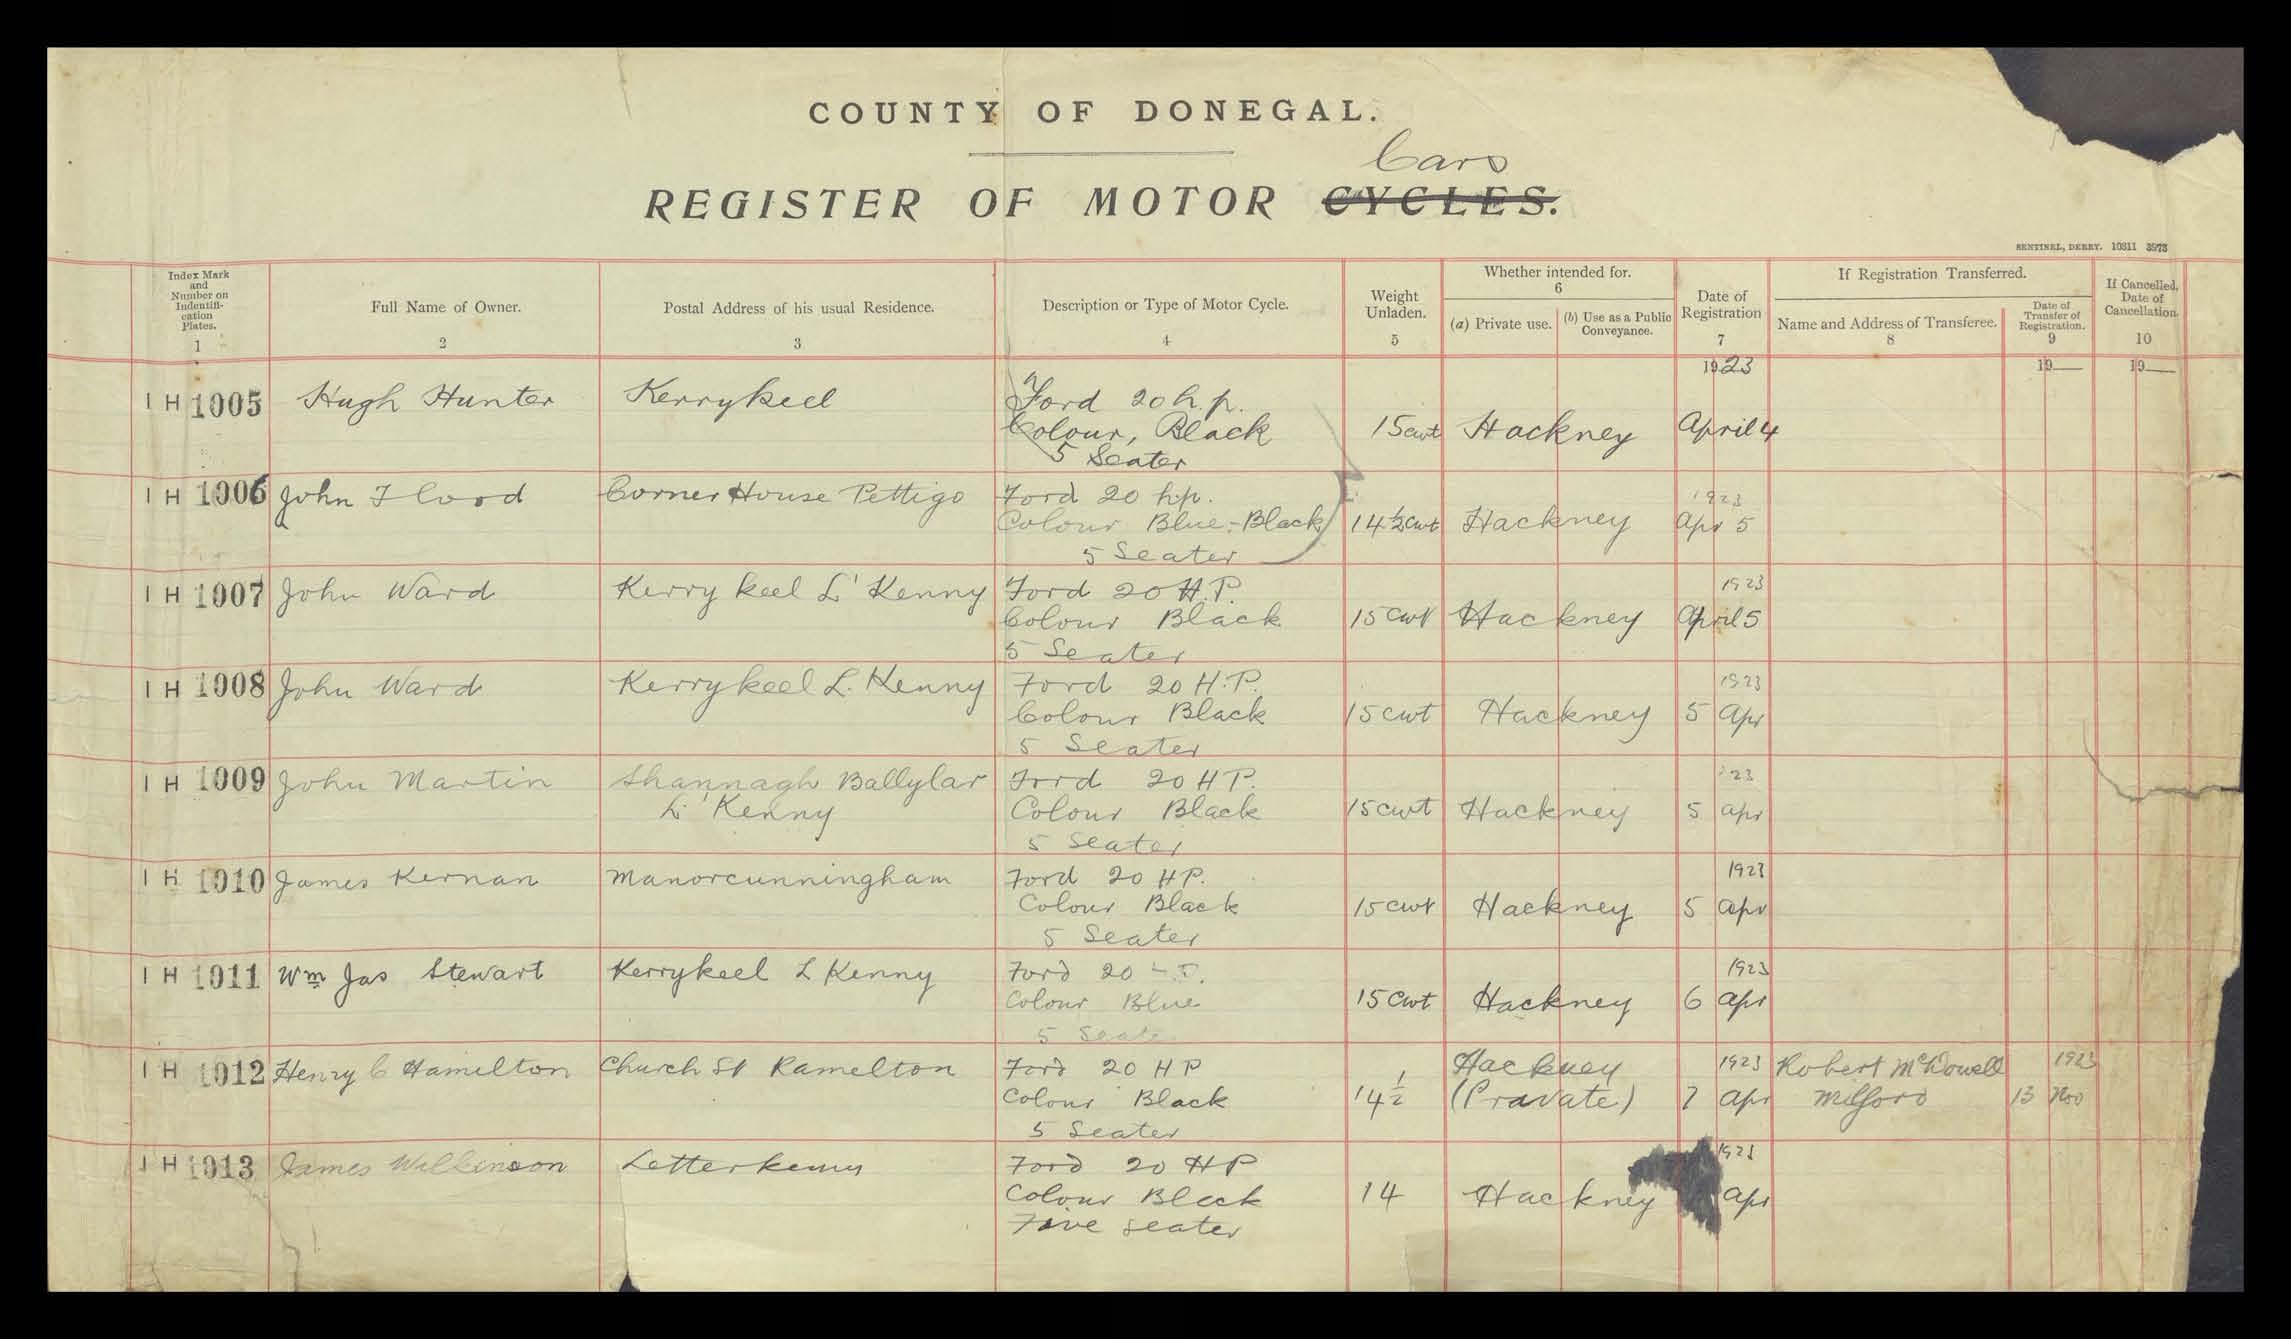 COUNTY OF DONEGAL.
Cars
REGISTER OF MOTOR CYCLES.
SENTINEL, DERRY. 10311 3973
Index Mark and Number on Indentifi-cation Plates. 1
Full Name of Owner. 2
Postal Address of his usual Residence. 3
Description or Type of Motor Cycle. 4
Weight Unladen. 5
Whether intended for. 6
(a) Private use.
(b) Use as a Public Conveyance.
Date of Registration 7
If Registration Transferred.
Name and Address of Transferee. 8
Date of Transfer of Registration. 9
If Cancelled, Date of Cancellation. 10
1923 19 19
IH 1005 Hugh Hunter Kerrykeel Ford 20 h.p.
Colour, Black 15 cwt Hackney April 4
5 Seater
IH 1006 John Flood Corner House Pettigo Ford 20 h.p. 1923
Colour Blue-Black 14 ½ cwt Hackney Apr 5
5 Seater
IH 1007 John Ward Kerry keel L' Kenny Ford 20 H.P. 1923
Colour Black 15 cwt Hackney April 5
5 Seater
IH 1008 John Ward Kerrykeel L. Kenny Ford 20 H.P. 1923
Colour Black 15 cwt Hackney 5 Apr
5 Seater
IH 1009 John Martin Shannagh Ballylar Ford 20 HP. 23
L' Kenny Colour Black 15 cwt Hackney 5 apr
5 Seater
IH 1010 James Kernan Manorcunningham Ford 20 HP. 1923
Colour Black 15 cwt Hackney 5 apr
5 Seater
IH 1011 Wm Jas Stewart Kerrykeel L Kenny Ford 20 1923
Colour Blue 15 cwt Hackney 6 apr
5 Seate
IH 1012 Henry C Hamilton Church St Ramelton Ford 20 HP Hackney 1923 Robert McDowell 1923
Colour Black 14 ½ (Pravate) 7 apr Milford 13 Nov
5 Seater
IH 1013 James Wilkinson Letterkenny Ford 20 HP 1923
Colour Black 14 Hackney apr
Five seater